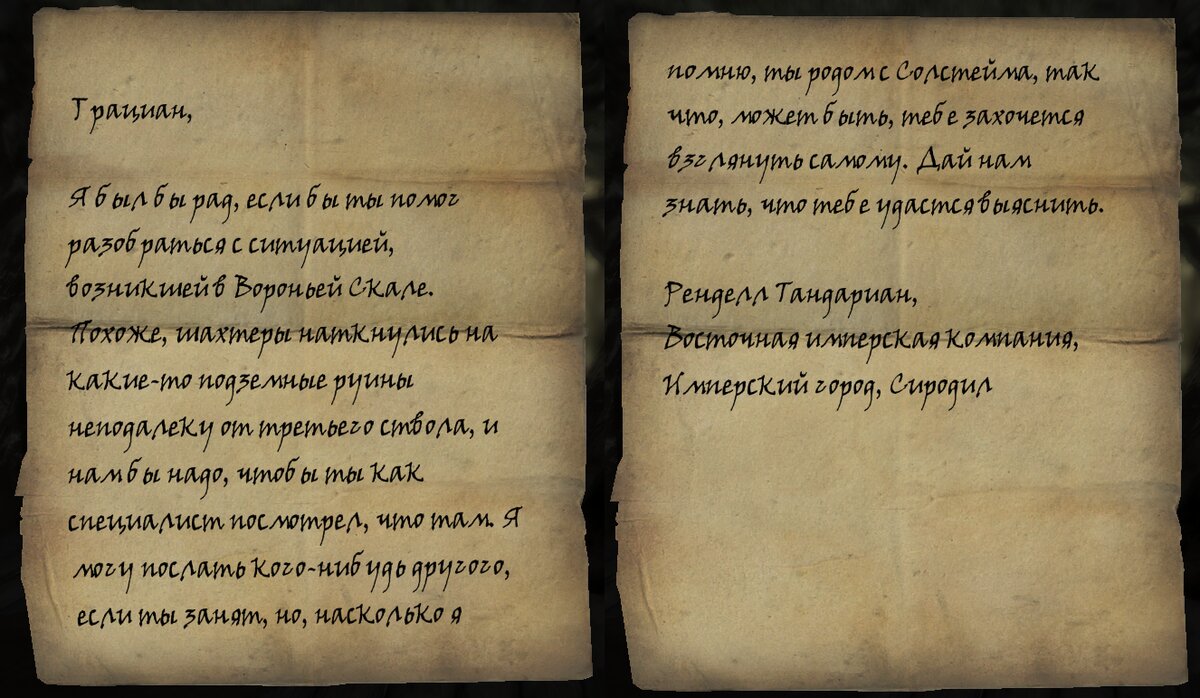 Грациан,
Я был бы рад, если бы ты помог
разобраться с ситуацией,
возникшей в Вороньей Скале.
Похоже, шахтеры наткнулись на
какие-то подземные руины
неподалеку от третьего ствола, и
нам бы надо, чтобы ты как
специалист посмотрел, что там. Я
могу послать кого-нибудь другого,
если ты занят, но, насколько я
помню, ты родом с Солстейма, так
что, может быть, тебе захочется
взглянуть самому. Дай нам
знать, что тебе удастся выяснить.
Ренделл Тандариан,
Восточная имперская компания,
Имперский город, Сиродил